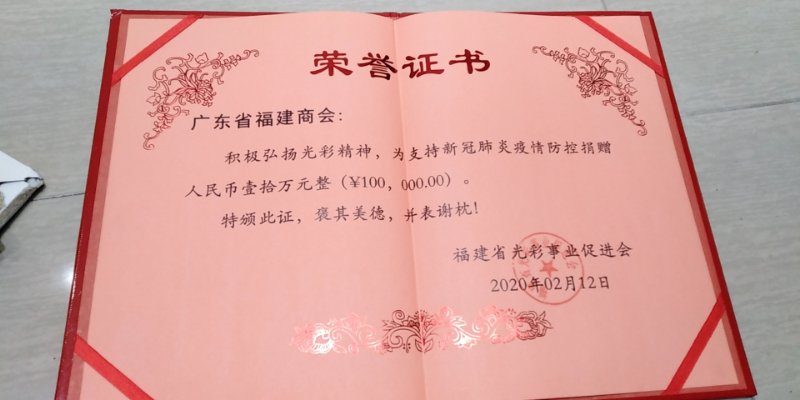 荣誉证书
广东省福建商会：
积极弘扬光彩精神，为支持新冠肺炎疫情防控捐赠
人民币壹拾万元整（¥100，000.00）。
特颁此证，褒其美德，并表谢枕！
福建省光彩事业促进会
2020年02月12日